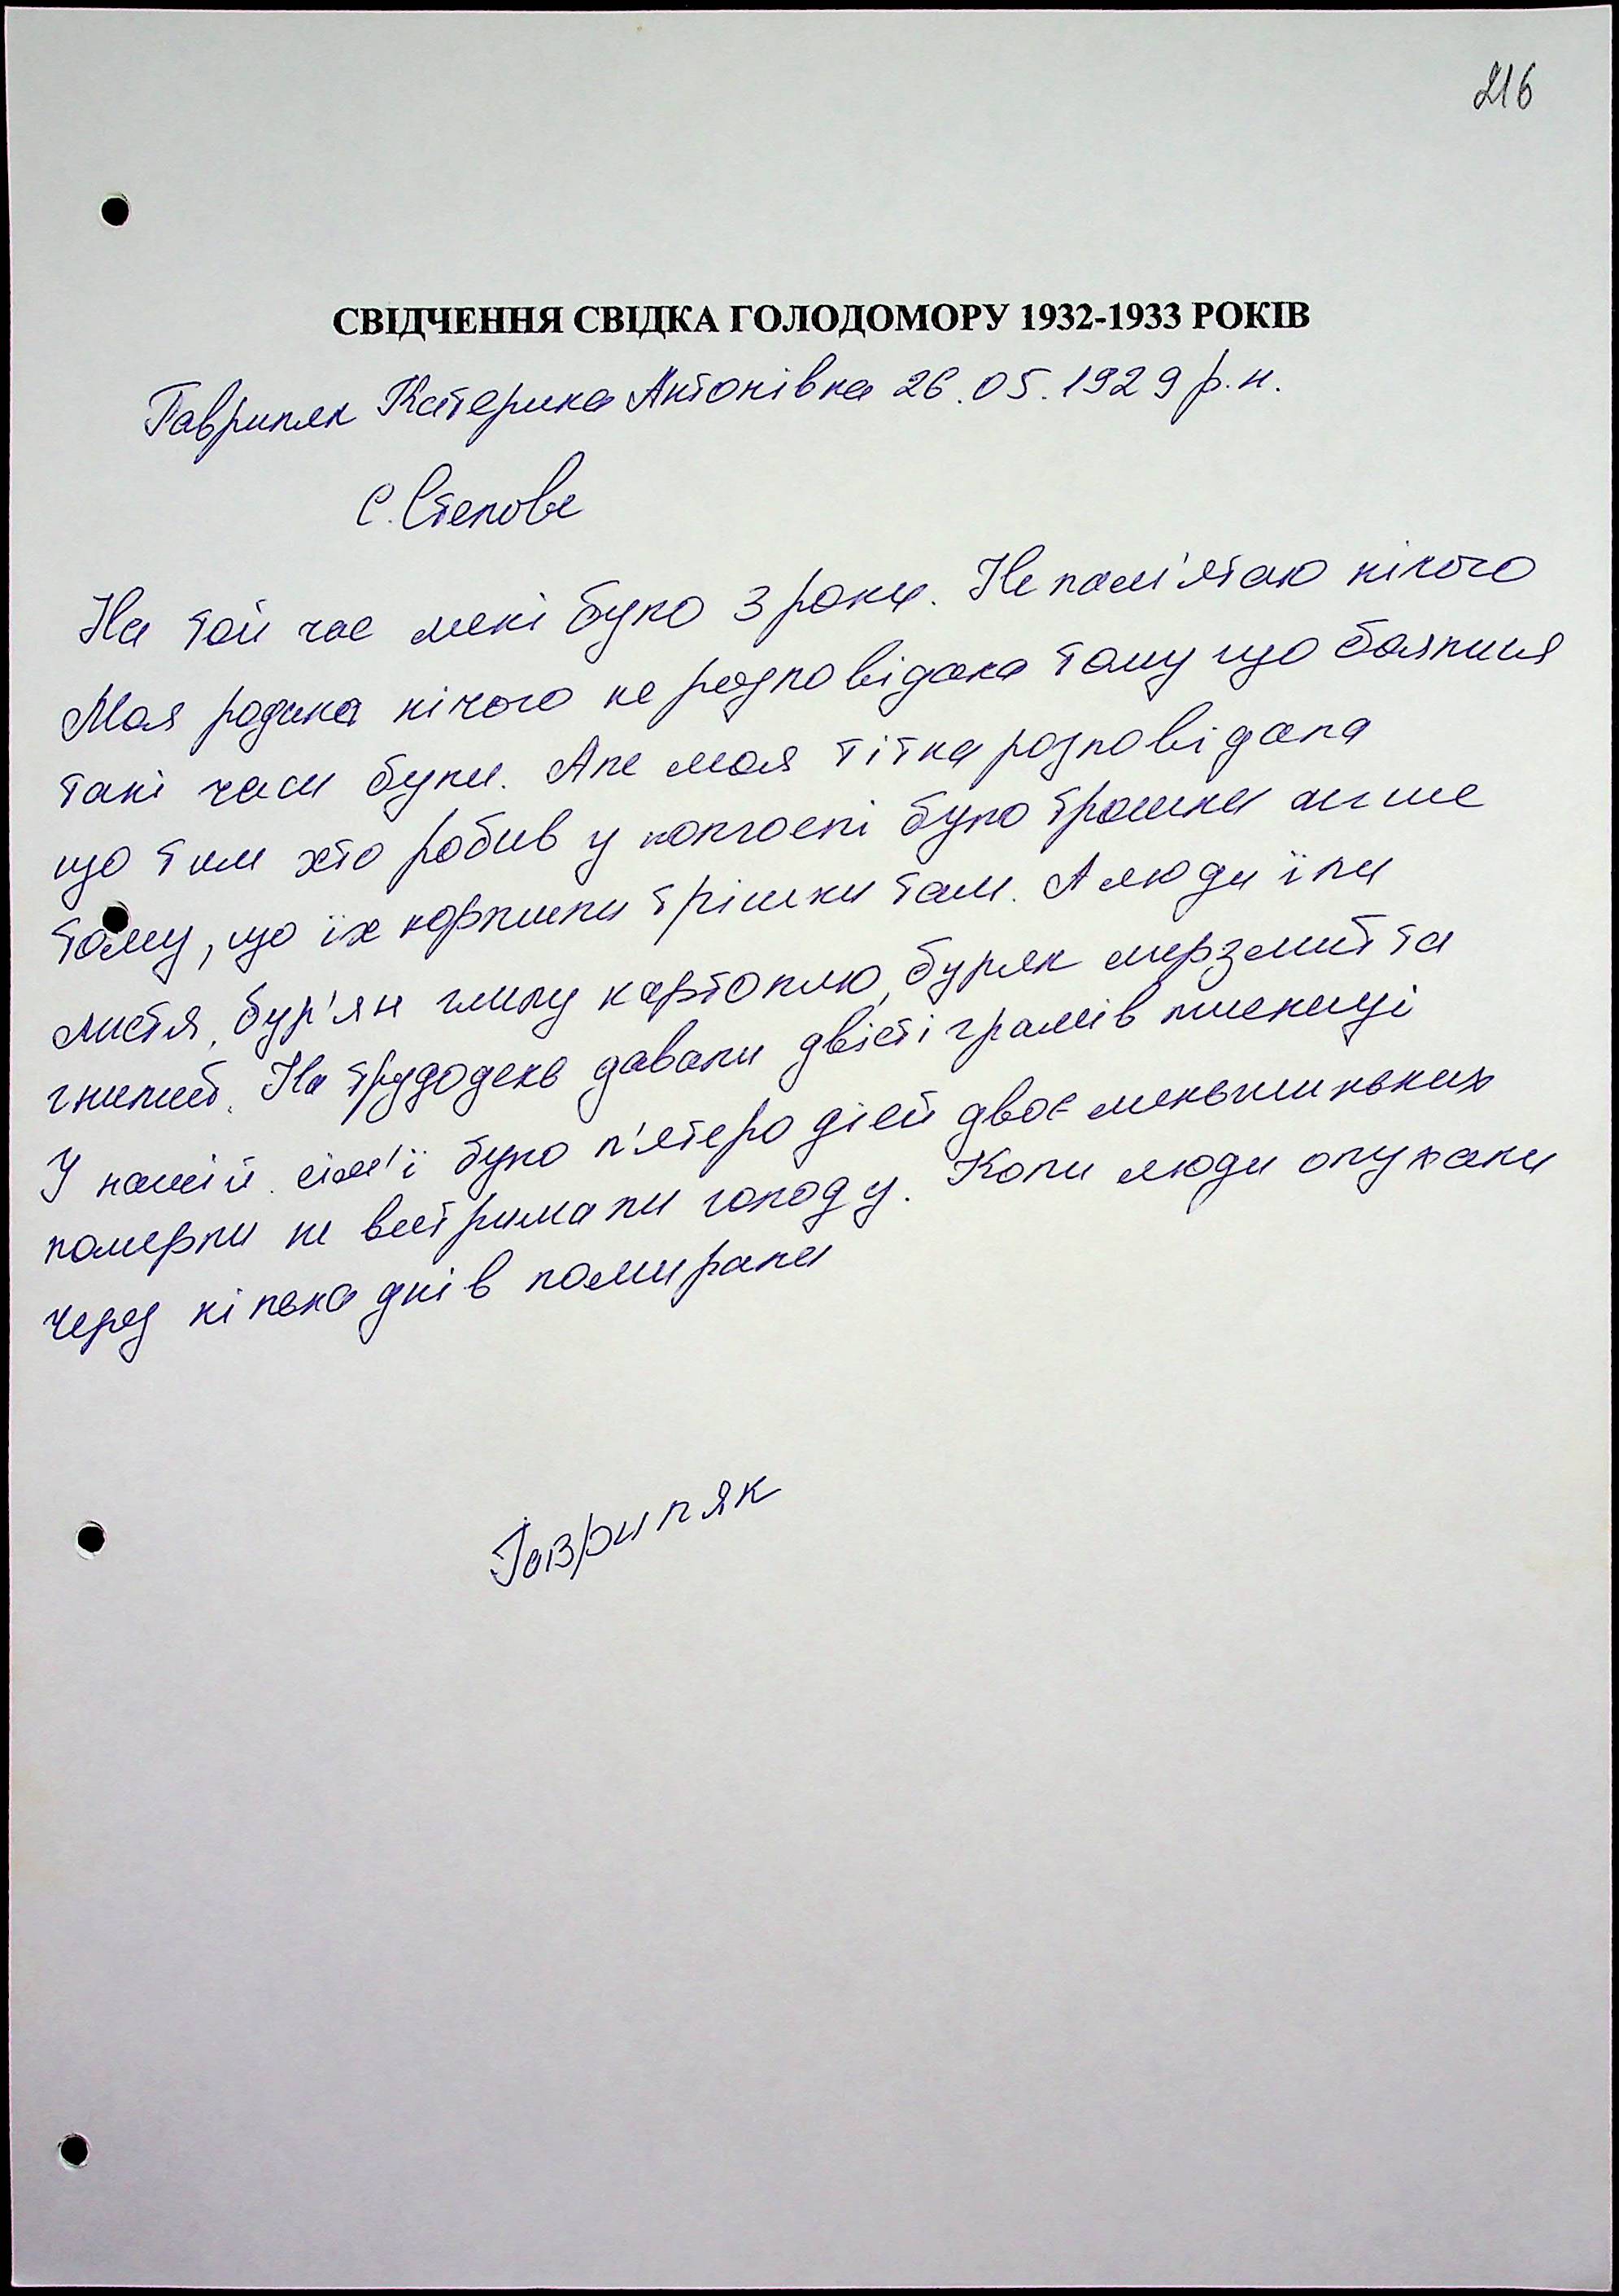 216
СВІДЧЕННЯ СВІДКА ГОЛОДОМОРУ 1932-1933 РОКІВ
Гавриляк Катерина Антонівна 26.05.1929 р.н.
С. Степове
На той час мені було 3 роки. Не пам'ятаю нічого
Моя родина нічого не розповідала тому що боялися
такі часи були. Але моя тітка розповідала
що тим хто робив у колгоспі було трошки лигше
тому, що їх кормили трішки там. А люди їли
листя, бур'ян гнилу картоплю, буряк мерзлий та
гнилий. На трудодень давали двісті грамів пшениці
У нашій сім'ї було п'ятеро дітей двоє меньшиньких
померли не витримали голоду. Коли люди опухали
через кілька днів помирали
Гавриляк